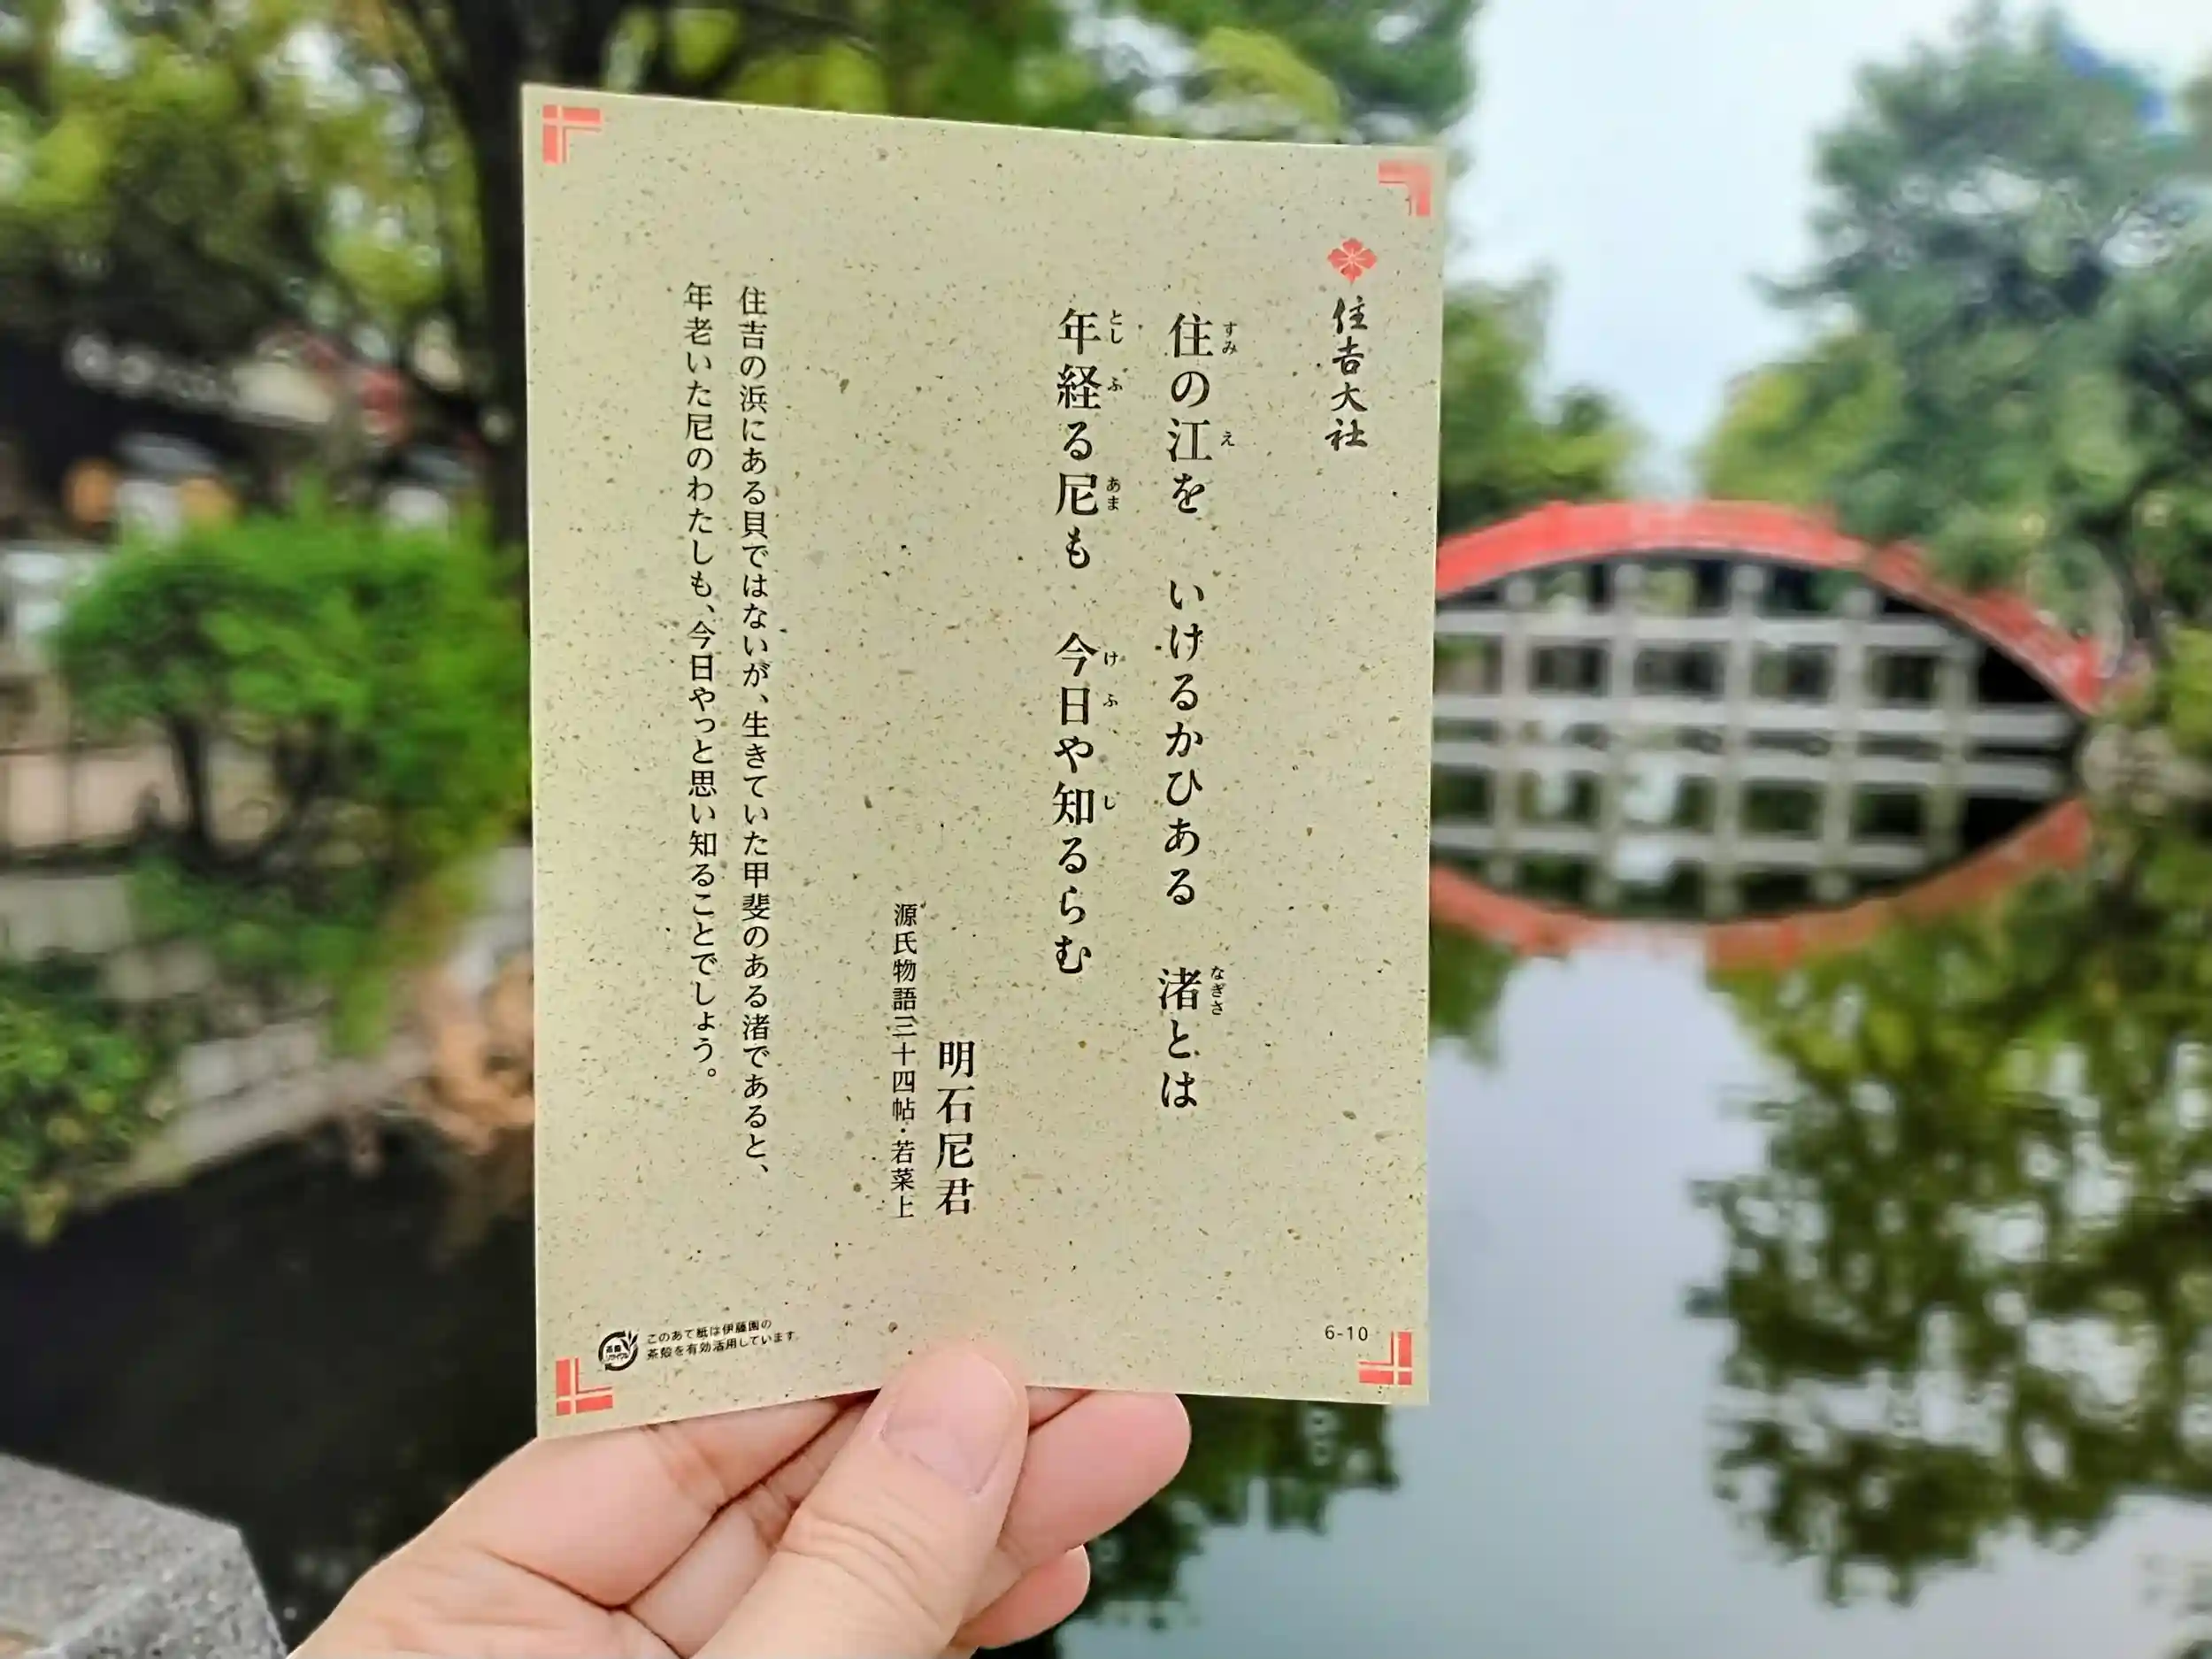 住吉大社
住の江を　いけるかひある　渚とは
すみ　え　なぎさ
年経る尼も　今日や知るらむ
とし　ふ　あま　け　ふ　し
明石尼君
源氏物語三十四帖・若菜上
住吉の浜にある貝ではないが、生きていた甲斐のある渚であると、
年老いた尼のわたしも、今日やっと思い知ることでしょう。
茶殻
リサイクル
このあて紙は伊藤園の
茶殻を有効活用しています。
6-10